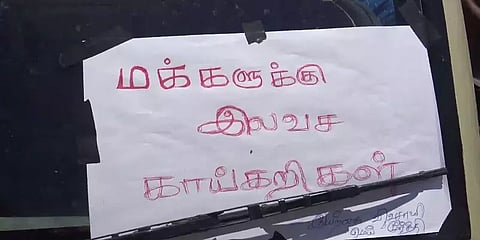 மக்களுக்கு
இலவச
காய்கறிகள்